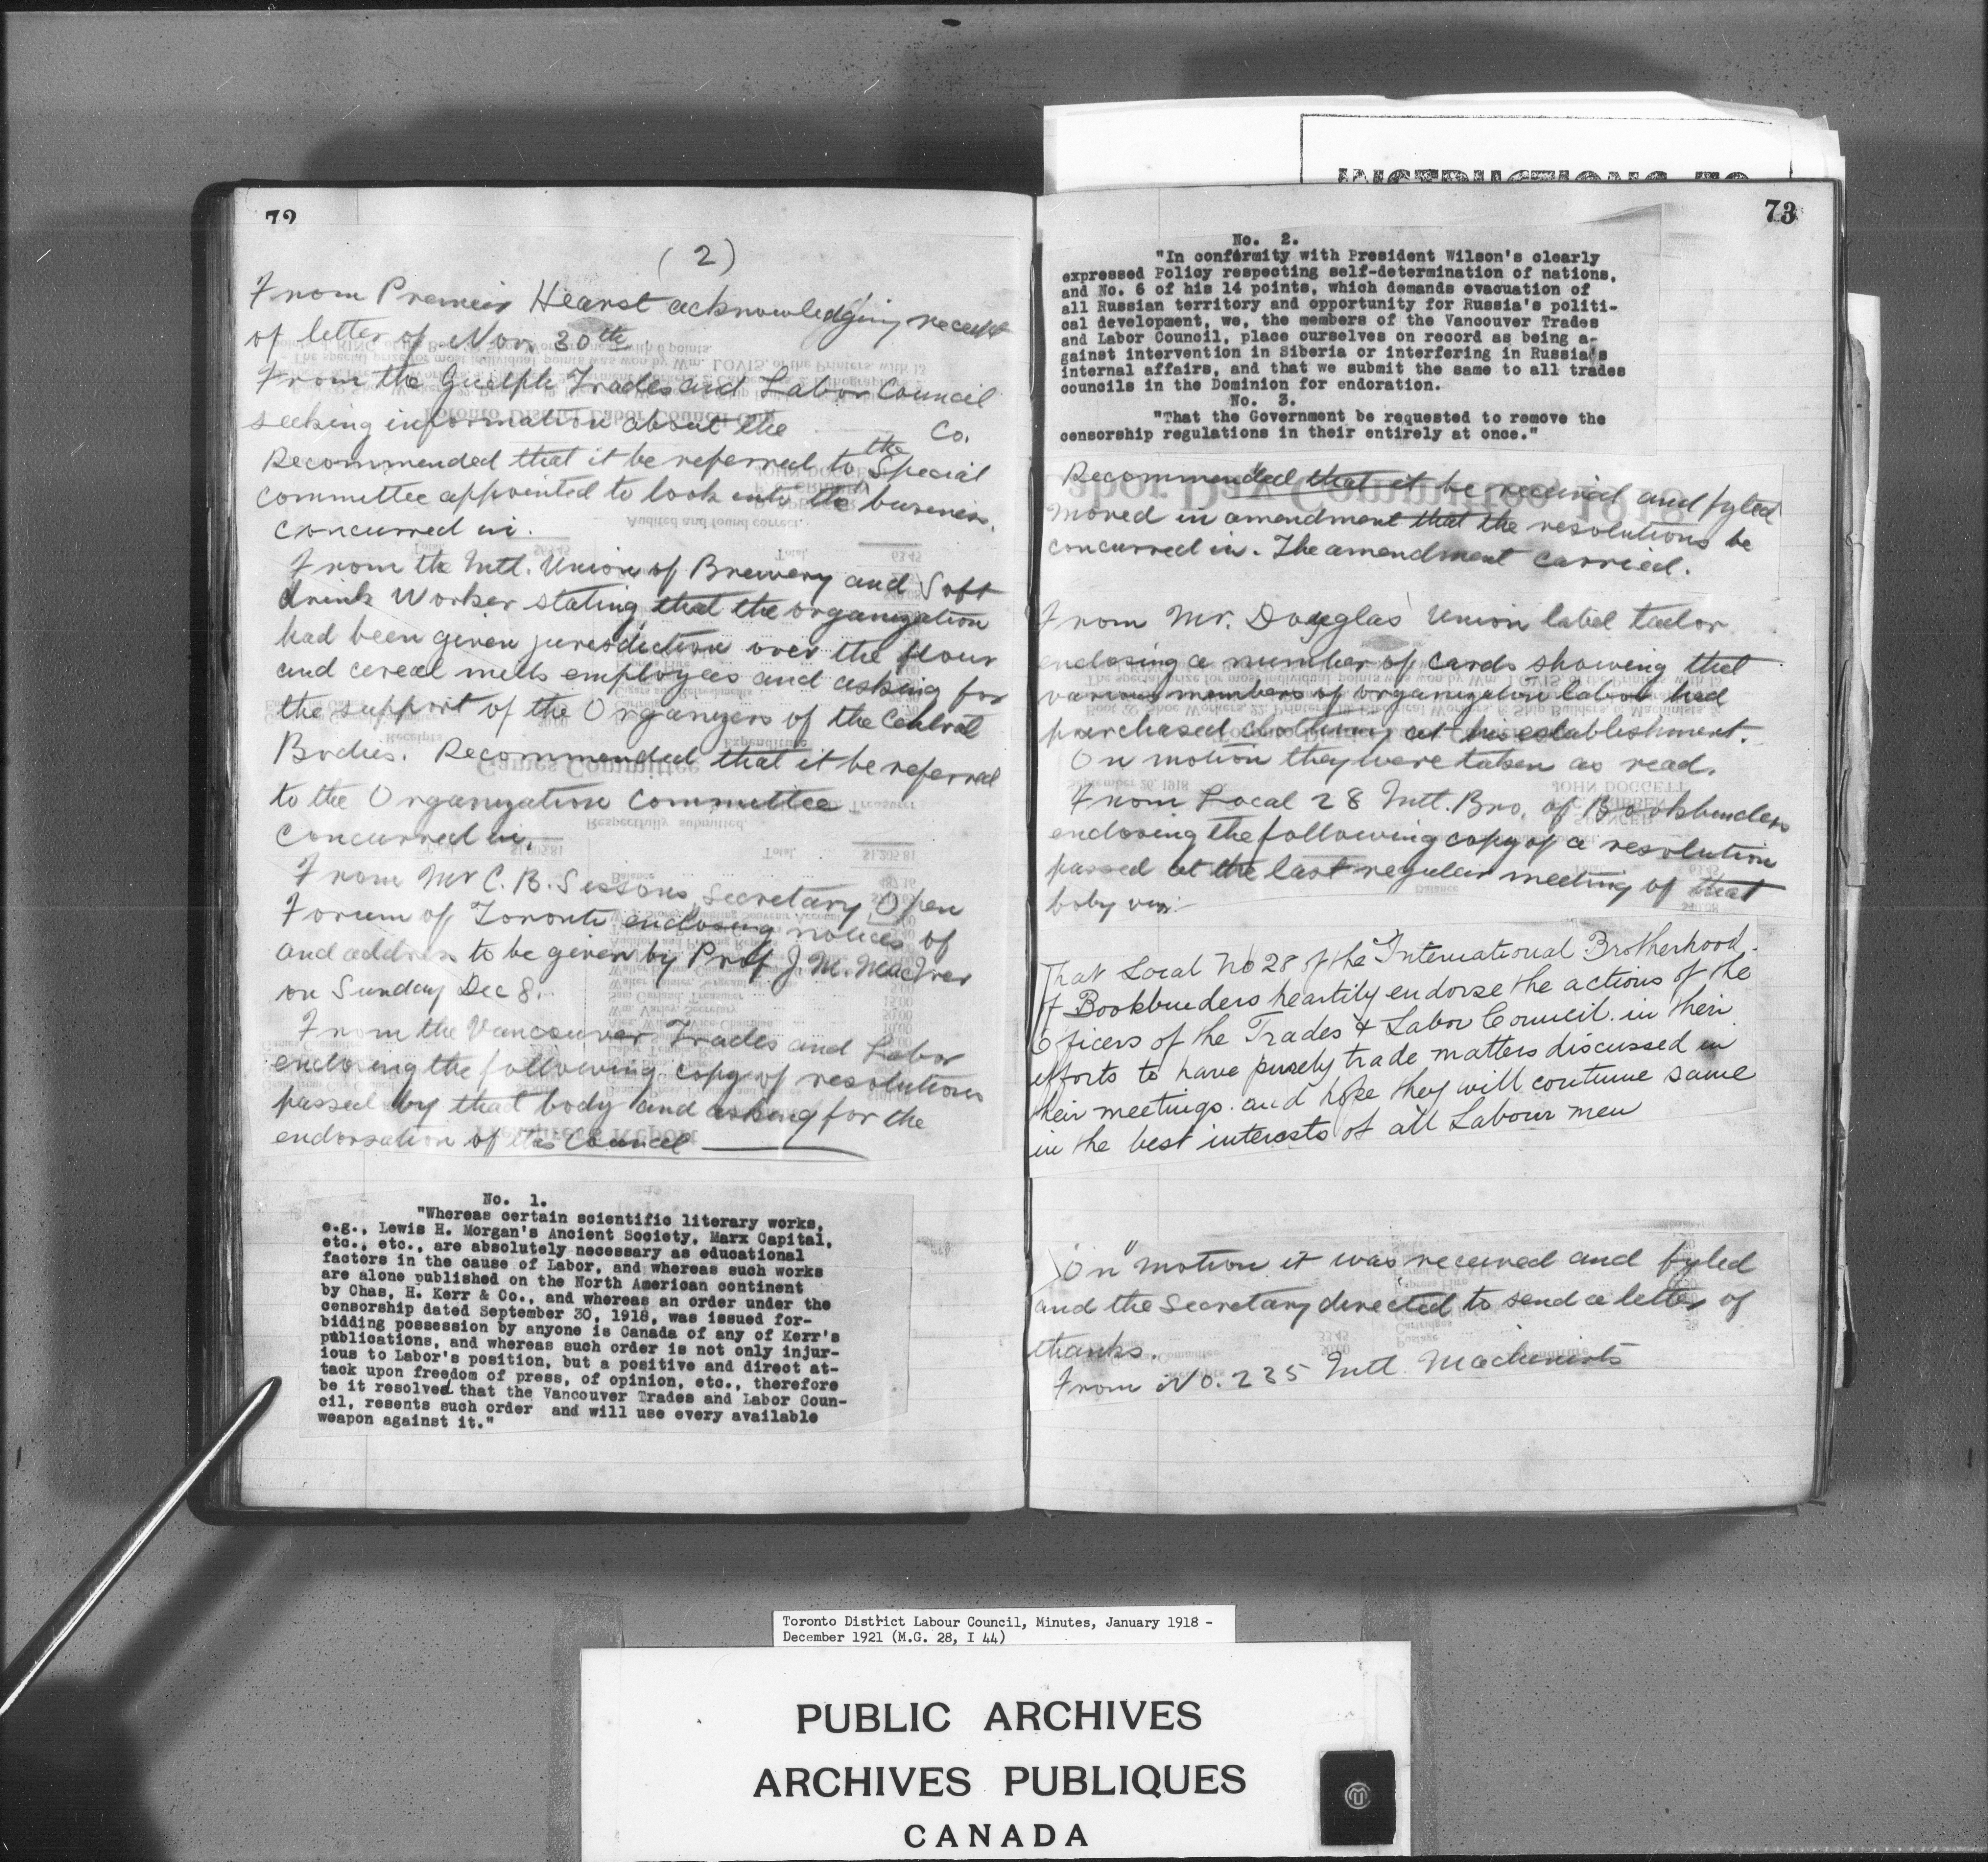 72
(2)
From Premier Hearst acknowledging receipt
of letter of Nov. 30th
From the Guelph Trades and Labor Council
seeking information about the Co.
Recommended that it be referred to the Special
committee appointed to look into the business.
Concurred in.
From the Intl. Union of Brewery and Soft
drink Worker stating that the organization
had been given jurisdiction over the flour
and cereal mills employees and asking for
the support of the Organizers of the Central
Bodies. Recommended that it be referred
to the Organization Committee
Concurred in.
From Mr C. B. Sissons, Secretary, Open
Forum of Toronto enclosing notices of
and address to be given by Prof J. M. MacIver
on Sunday Dec 8.
From the Vancouver Trades and Labor
enclosing the following copy of resolutions
passed by that body and asking for the
endorsation of this Council
No. 1.
"Whereas certain scientific literary works,
e.g., Lewis H. Morgan's Ancient Society, Marx Capital,
etc., etc., are absolutely necessary as educational
factors in the cause of Labor, and whereas such works
are alone published on the North American continent
by Chas, H. Kerr & Co., and whereas an order under the
censorship dated September 30, 1918, was issued for-
bidding possession by anyone is Canada of any of Kerr's
publications, and whereas such order is not only injur-
ious to Labor's position, but a positive and direct at-
tack upon freedom of press, of opinion, etc., therefore
be it resolved that the Vancouver Trades and Labor Coun-
cil, resents such order and will use every available
weapon against it."
INSTRUCTIONS TO
73
No. 2.
"In conformity with President Wilson's clearly
expressed Policy respecting self-determination of nations,
and No. 6 of his 14 points, which demands evacuation of
all Russian territory and opportunity for Russia's politi-
cal development, we, the members of the Vancouver Trades
and Labor Council, place ourselves on record as being a-
gainst intervention in Siberia or interfering in Russia's
internal affairs, and that we submit the same to all trades
councils in the Dominion for endoration.
No. 3.
"That the Government be requested to remove the
censorship regulations in their entirely at once."
Recommended that it be received and fyled
Moved in amendment that the resolutions be
concurred in. The amendment carried.
From Mr. Douglas Union label tailor
enclosing a number of cards showing that
various members of organization labor had
purchased clothing at his establishment.
On motion they were taken as read.
From Local 28 Intl. Bro. of Bookbinders
enclosing the following copy of a resolution
passed at the last regular meeting of that
boby viz:-
That Local No 28 of the International Brotherhood
of Bookbinders heartily endorse the actions of the
Officers of the Trades & Labor Council in their
efforts to have purely trade matters discussed in
their meetings. and hope they will continue same
in the best interests of all Labour men
On motion it was received and fyled
and the Secretary directed to send a letter of
thanks.
From No. 235 Intl. Machinists
Toronto District Labour Council, Minutes, January 1918 -
December 1921 (M.G. 28, I 44)
PUBLIC ARCHIVES
ARCHIVES PUBLIQUES
CANADA